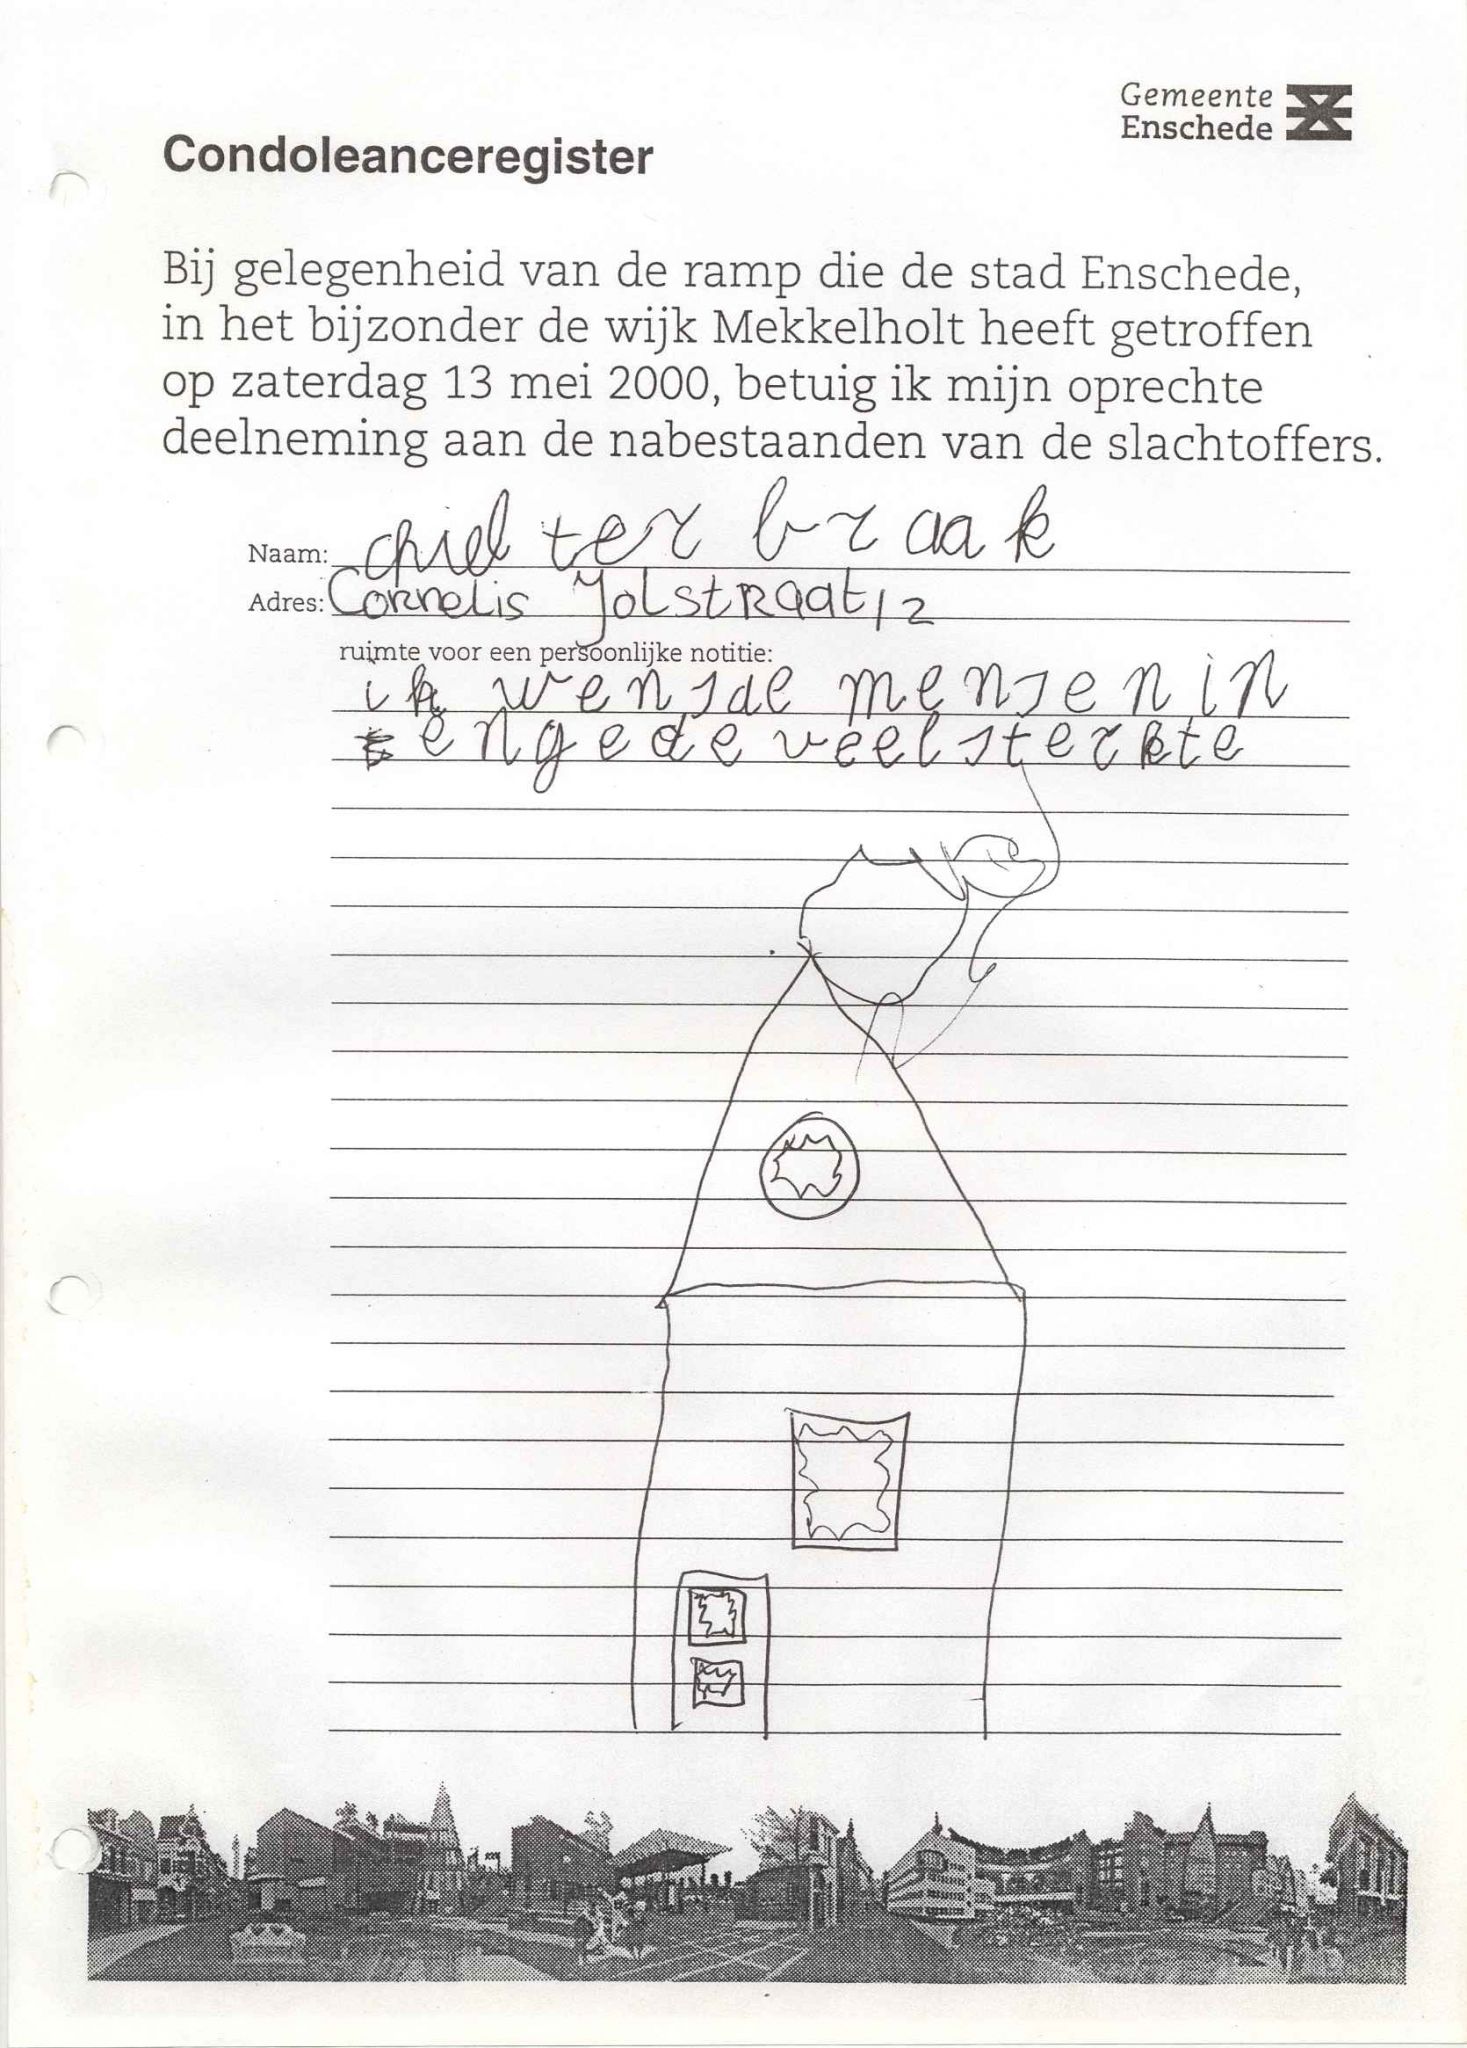 Gemeente
Enschede
Condoleanceregister
Bij gelegenheid van de ramp die de stad Enschede,
in het bijzonder de wijk Mekkelholt heeft getroffen
op zaterdag 13 mei 2000, betuig ik mijn oprechte
deelneming aan de nabestaanden van de slachtoffers.
Naam: chiel ter braak
Adres: Cornelis Jolstraat 12
ruimte voor een persoonlijke notitie:
ik wensde mensen in
engede veel sterkte